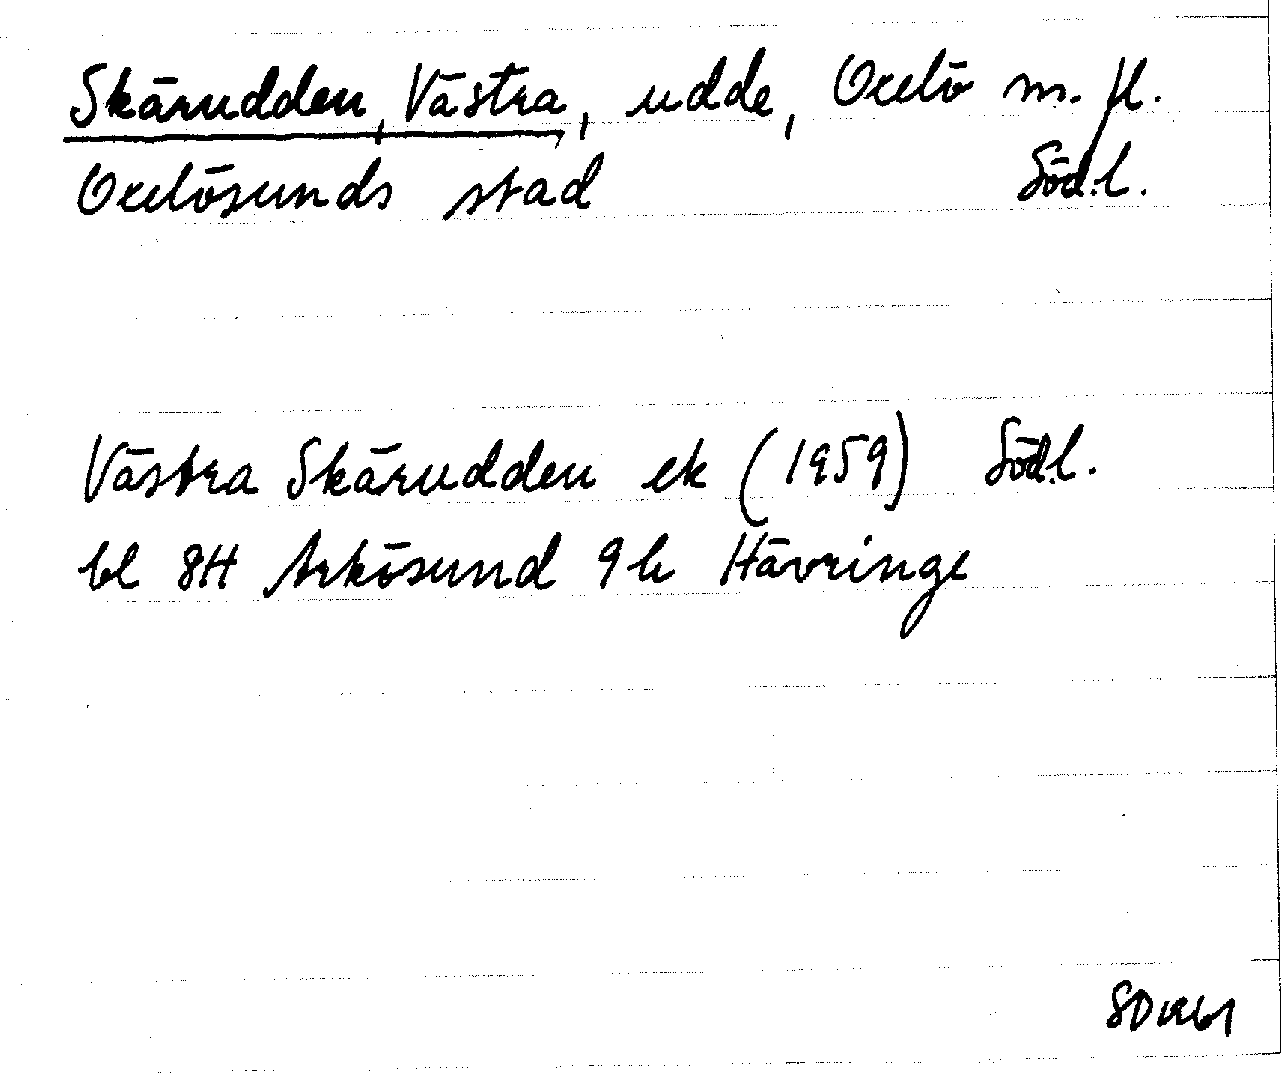 Skärudden, Västra, udde, Oxelö m. fl.
Oxelösunds stad Södl.
Västra Skärudden ek (1959) Södl.
bl 8H Arkösund 9h Hävringe